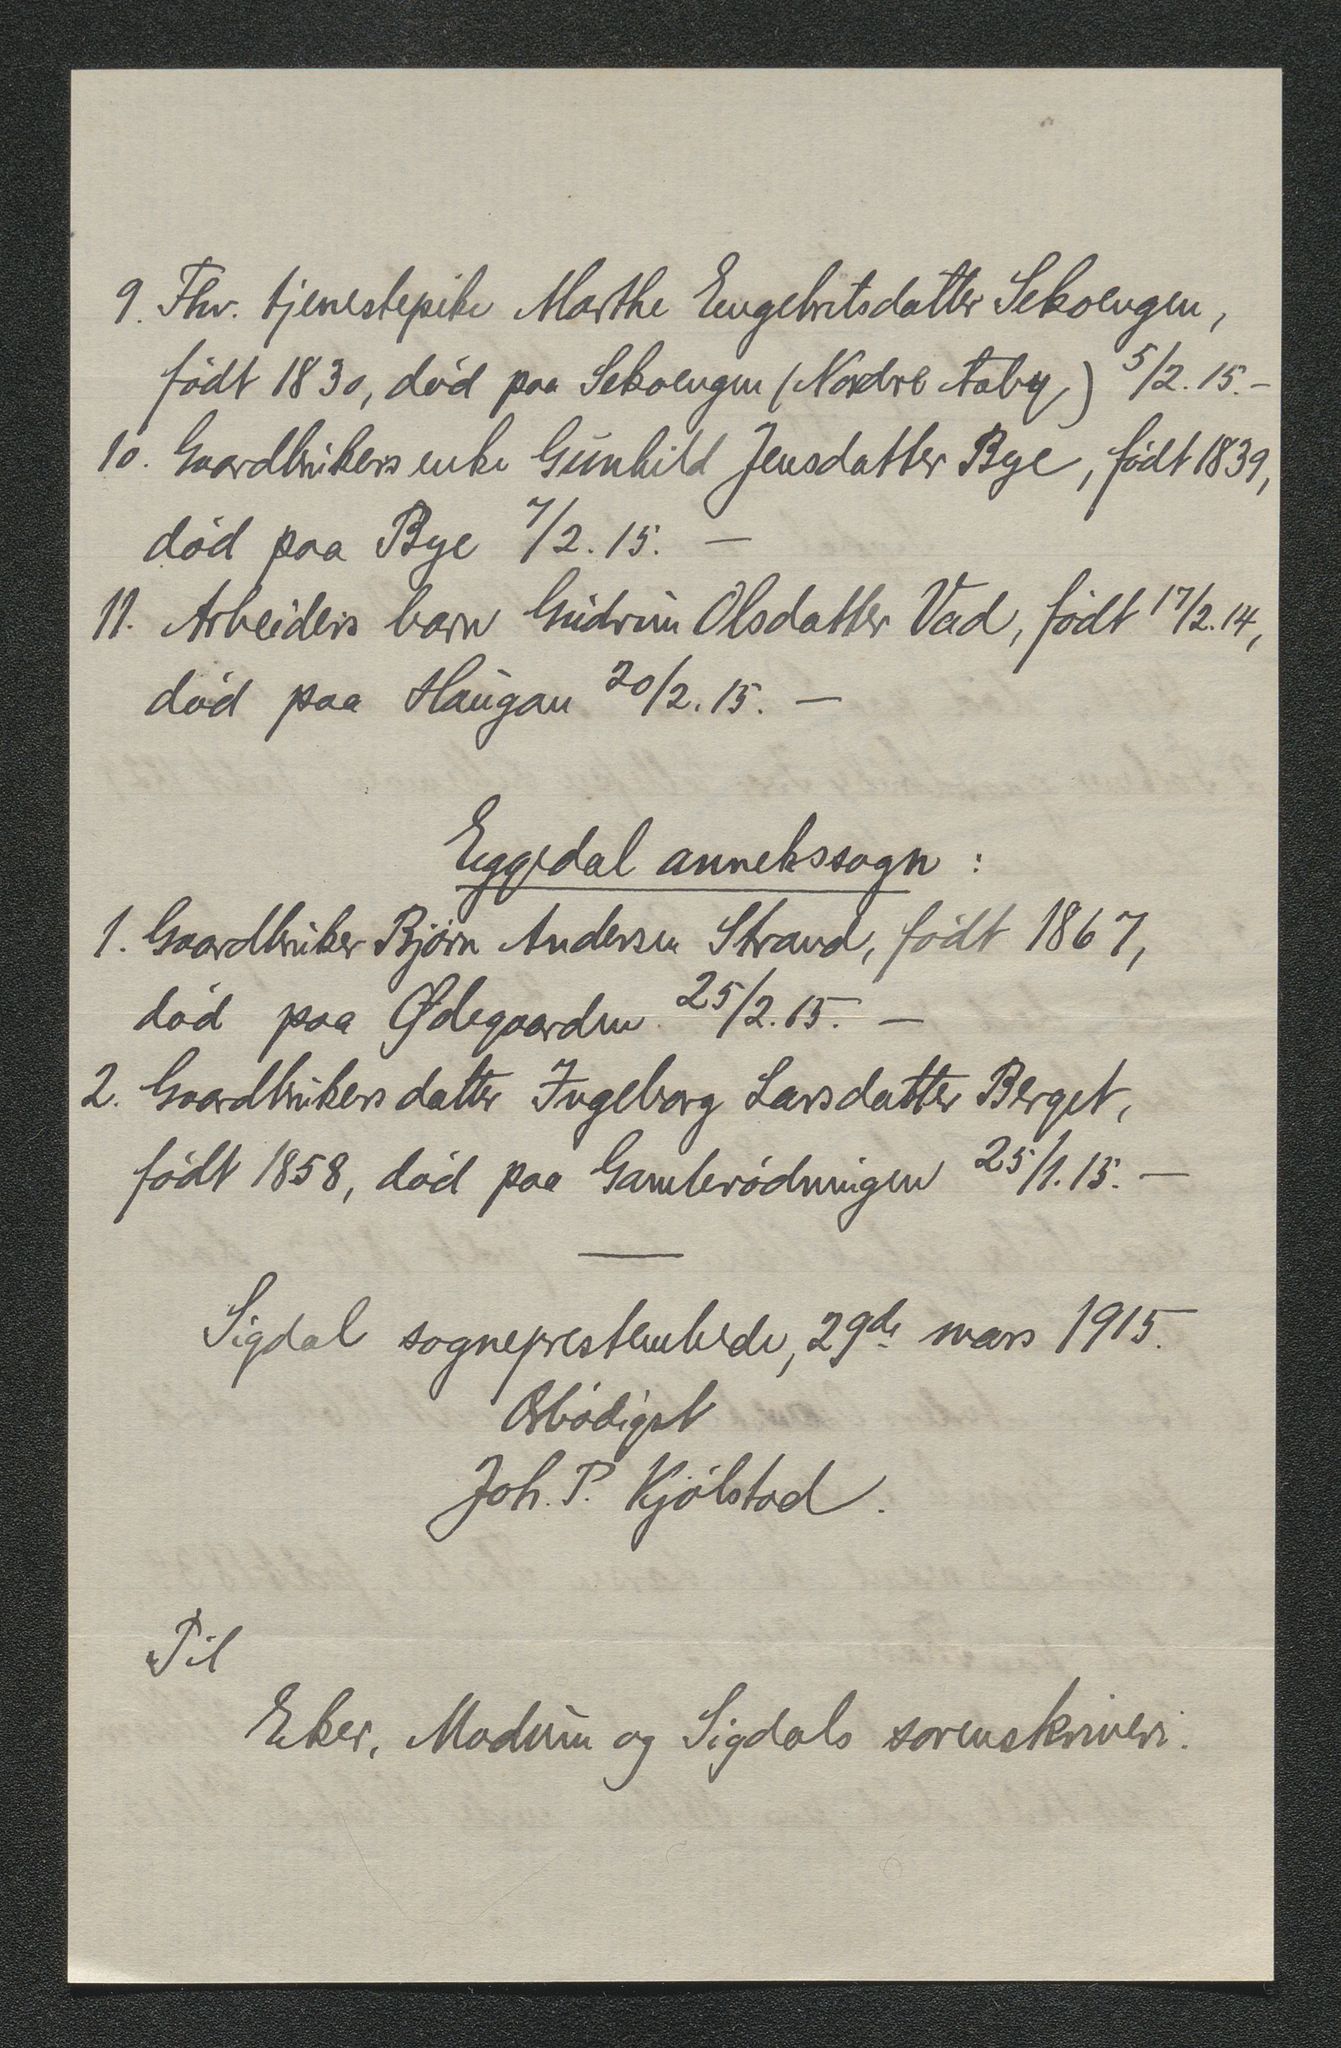 9. Fhv. tjenestepike Marthe Engebritsdatter Sekoengen,
født 1830, død paa Sekoengen (Nordre Aaby) 5/2. 15. –
10. Gaardbrukers enke Gunhild Jensdatter Bye, født 1839,
død paa Bye 7/2. 15. –
11. Arbeiders barn Gudrun Olsdatter Vad, født 17/2. 14,
død paa Haugan 20/2. 15. –
Eggedal annekssogn :
1. Gaardbruker Bjørn Andersen Strand, født 1867,
død paa Ødegaarden 25/2. 15. –
2. Gaardbrukers datter Ingeborg Larsdatter Berget,
født 1858, død paa Gamlerødningen 25/1. 15. –
Sigdal sogneprestembede, 29de mars 1915.
Ærbødigst
Joh. P. Kjølstad.
Til
Eker, Modum og Sigdals sorenskriveri.